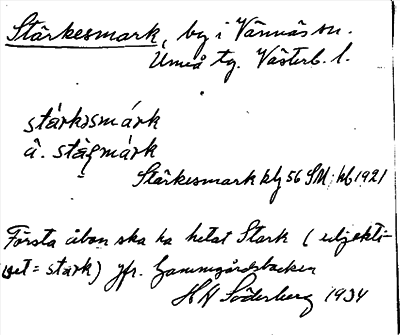 Stärkesmark, by i Vännäs sn.
Umeå tg. Västerb. l.
stárkəsmárk
â. stäʂmárk
Stärkesmark blg 56 SM; hb 1921
Första åbon ska ha hetat Stark (adjekti-
vet = stark) jfr. Gammgårdsbacken
H H Söderberg 1934